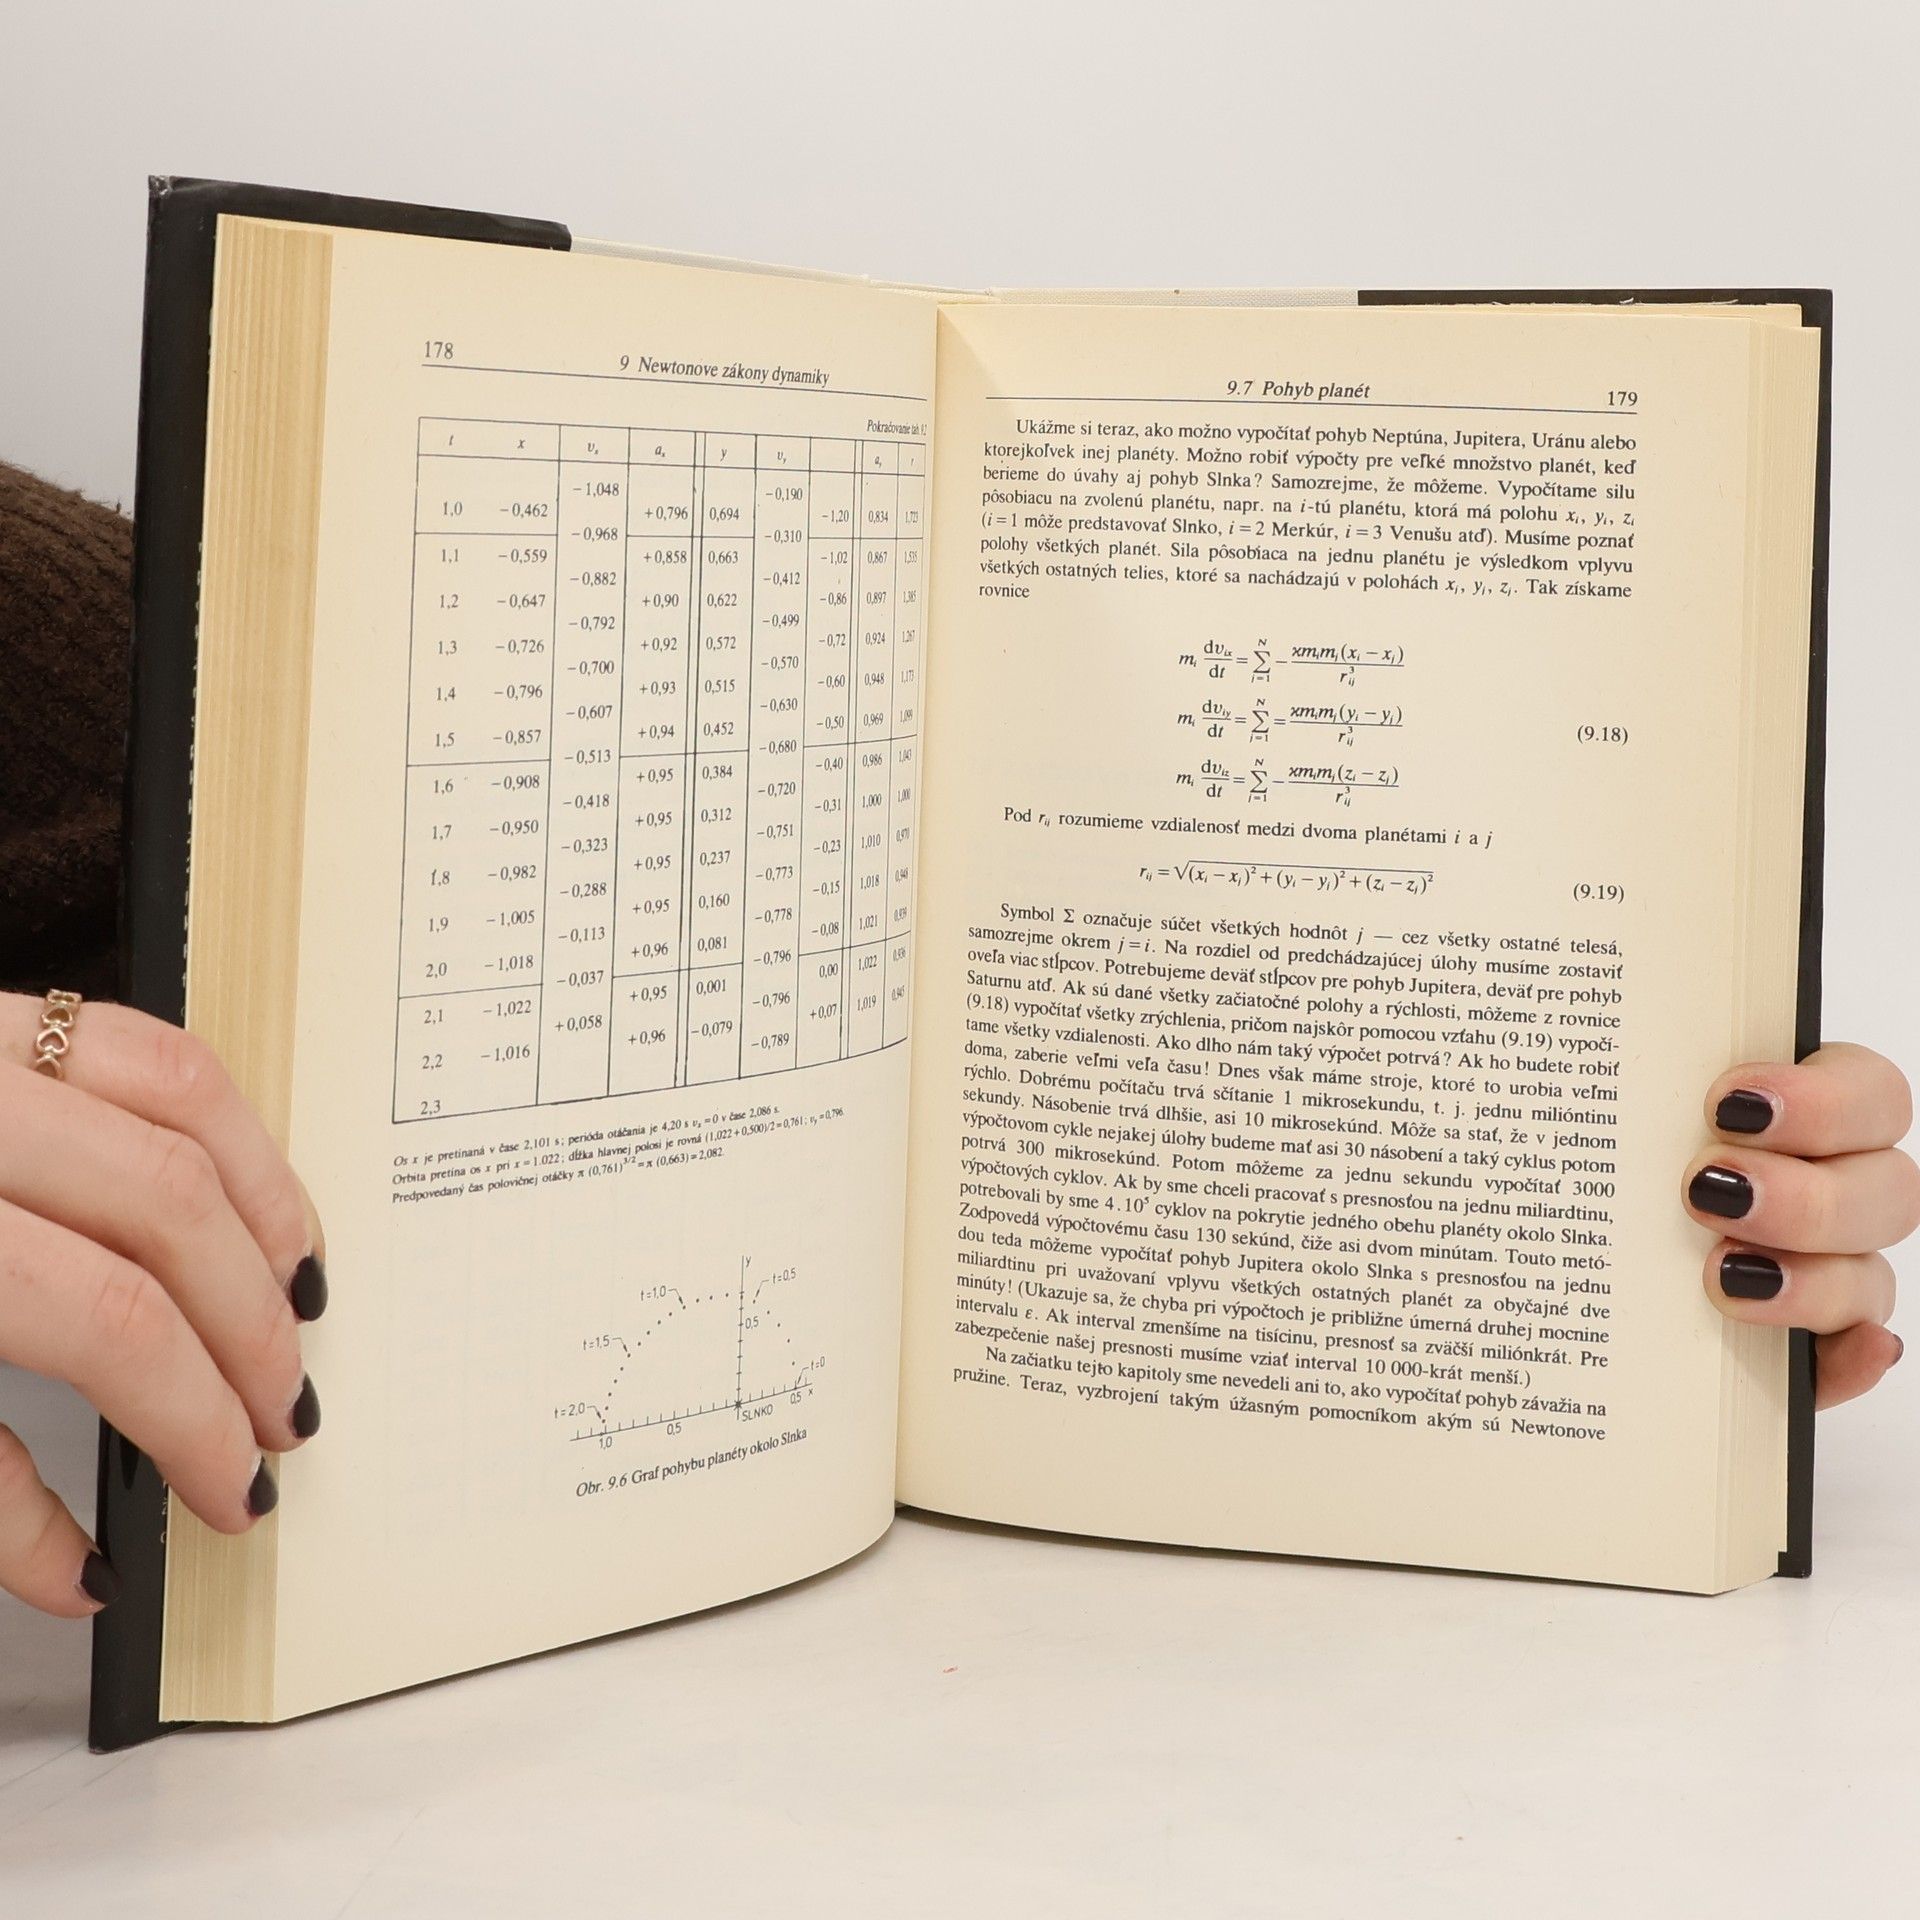 178
9 Newtonove zákony dynamiky
Pokračovanie tab. 9.2
t x υx ax y υy ay r
−1,048 −0,190
1,0 −0,462 +0,796 0,694 −1,20 0,834
−0,968 −0,310
1,1 −0,559 +0,858 0,663 −1,02 0,867 1,535
−0,882 −0,412
1,2 −0,647 +0,90 0,622 −0,86 0,897 1,385
−0,792 −0,499
1,3 −0,726 +0,92 0,572 −0,72 0,924 1,267
−0,700 −0,570
1,4 −0,796 +0,93 0,515 −0,60 0,948 1,173
−0,607 −0,630
1,5 −0,857 +0,94 0,452 −0,50 0,969 1,099
−0,513 −0,680
1,6 −0,908 +0,95 0,384 −0,40 0,986 1,043
−0,418 −0,720
1,7 −0,950 +0,95 0,312 −0,31 1,000 1,000
−0,323 −0,751
1,8 −0,982 +0,95 0,237 −0,23 1,010 0,970
−0,288 −0,773
1,9 −1,005 +0,95 0,160 −0,15 1,018 0,948
−0,113 −0,778
2,0 −1,018 +0,96 0,081 −0,08 1,021 0,939
−0,037 −0,796
2,1 −1,022 +0,95 0,001 0,00 1,022 0,936
+0,058 −0,796
2,2 −1,016 +0,96 −0,079 +0,07 1,019 0,945
−0,789
2,3
Os x je pretínaná v čase 2,101 s; perióda otáčania je 4,20 s υx = 0 v čase 2,086 s.
Orbita pretína os x pri x = 1.022; dĺžka hlavnej polosi je rovná (1,022 + 0,500)/2 = 0,761; υy = 0,796
Predpovedaný čas polovičnej otáčky π (0,761)^3/2 = π (0,663) = 2,082.
y
t=0,5
t=1,0
0,5
t=1,5
t=0
t=2,0
1,0 0,5 SLNKO 0,5 x
Obr. 9.6 Graf pohybu planéty okolo Slnka
9.7 Pohyb planét
179
Ukážme si teraz, ako možno vypočítať pohyb Neptúna, Jupitera, Uránu alebo
ktorejkoľvek inej planéty. Možno robiť výpočty pre veľké množstvo planét, keď
berieme do úvahy aj pohyb Slnka? Samozrejme, že môžeme. Vypočítame silu
pôsobiacu na zvolenú planétu, napr. na i-tú planétu, ktorá má polohu xi, yi, zi
(i = 1 môže predstavovať Slnko, i = 2 Merkúr, i = 3 Venušu atď). Musíme poznať
polohy všetkých planét. Sila pôsobiaca na jednu planétu je výsledkom vplyvu
všetkých ostatných telies, ktoré sa nachádzajú v polohách xj, yj, zj. Tak získame
rovnice
mi dυix/dt = Σ(j=1..N) − ϰmimj(xi − xj)/rij³
mi dυiy/dt = Σ(j=1..N) = ϰmimj(yi − yj)/rij³ (9.18)
mi dυiz/dt = Σ(j=1..N) − ϰmimj(zi − zj)/rij³
Pod rij rozumieme vzdialenosť medzi dvoma planétami i a j
rij = √(xi − xj)² + (yi − yj)² + (zi − zj)² (9.19)
Symbol Σ označuje súčet všetkých hodnôt j — cez všetky ostatné telesá,
samozrejme okrem j = i. Na rozdiel od predchádzajúcej úlohy musíme zostaviť
oveľa viac stĺpcov. Potrebujeme deväť stĺpcov pre pohyb Jupitera, deväť pre pohyb
Saturnu atď. Ak sú dané všetky začiatočné polohy a rýchlosti, môžeme z rovnice
(9.18) vypočítať všetky zrýchlenia, pričom najskôr pomocou vzťahu (9.19) vypočí-
tame všetky vzdialenosti. Ako dlho nám taký výpočet potrvá? Ak ho budete robiť
doma, zaberie veľmi veľa času! Dnes však máme stroje, ktoré to urobia veľmi
rýchlo. Dobrému počítaču trvá sčítanie 1 mikrosekundu, t. j. jednu milióntinu
sekundy. Násobenie trvá dlhšie, asi 10 mikrosekúnd. Môže sa stať, že v jednom
výpočtovom cykle nejakej úlohy budeme mať asi 30 násobení a taký cyklus potom
potrvá 300 mikrosekúnd. Potom môžeme za jednu sekundu vypočítať 3000
výpočtových cyklov. Ak by sme chceli pracovať s presnosťou na jednu miliardtinu,
potrebovali by sme 4.10⁵ cyklov na pokrytie jedného obehu planéty okolo Slnka.
Zodpovedá výpočtovému času 130 sekúnd, čiže asi dvom minútam. Touto metó-
dou teda môžeme vypočítať pohyb Jupitera okolo Slnka s presnosťou na jednu
miliardtinu pri uvažovaní vplyvu všetkých ostatných planét za obyčajné dve
minúty! (Ukazuje sa, že chyba pri výpočtoch je približne úmerná druhej mocnine
intervalu ε. Ak interval zmenšíme na tisícinu, presnosť sa zväčší miliónkrát. Pre
zabezpečenie našej presnosti musíme vziať interval 10 000-krát menší.)
Na začiatku tejto kapitoly sme nevedeli ani to, ako vypočítať pohyb závažia na
pružine. Teraz, vyzbrojení takým úžasným pomocníkom akým sú Newtonove